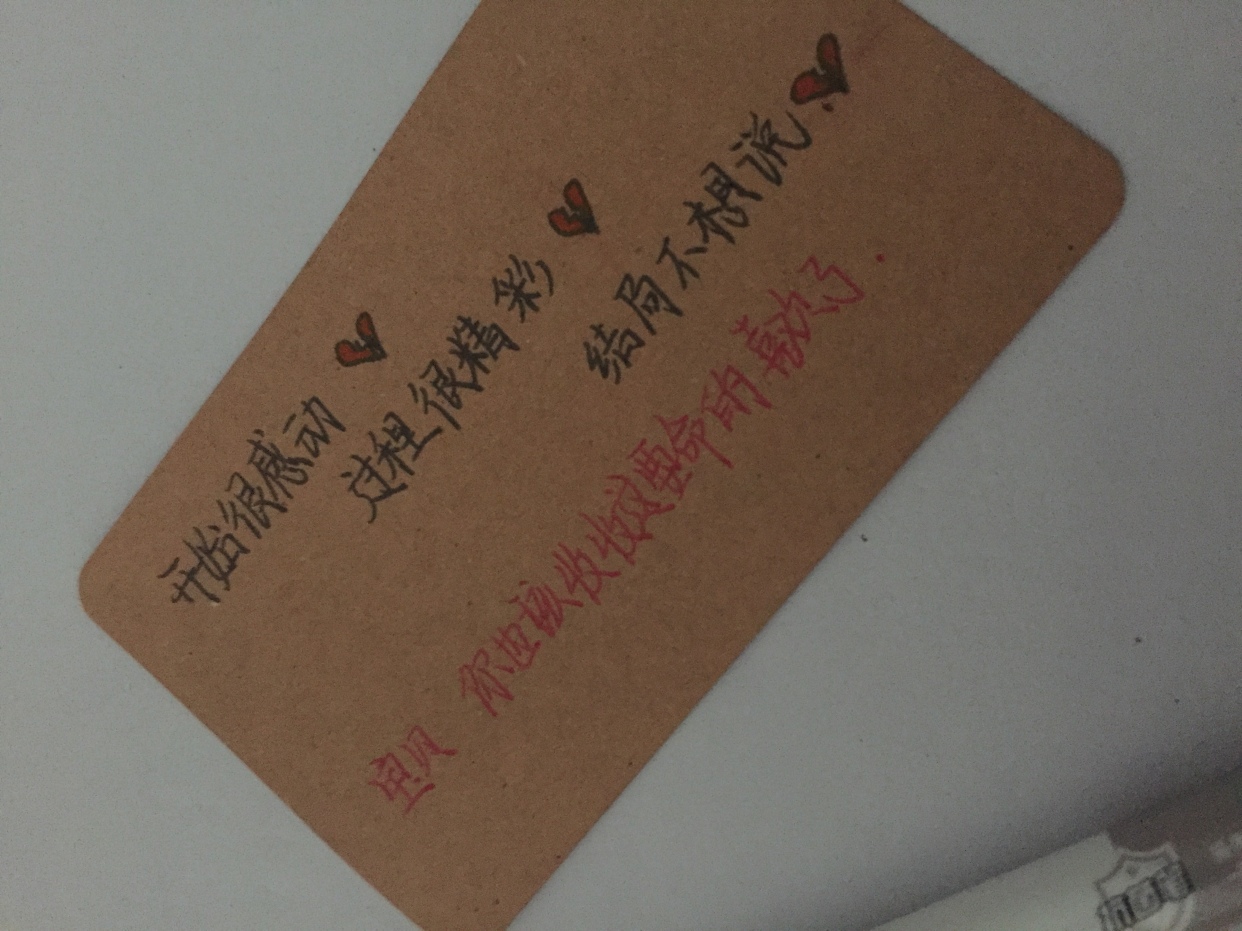 开始很感动
过程很精彩
结局不想说.
宝贝 你应该收收这要命的喜欢了.